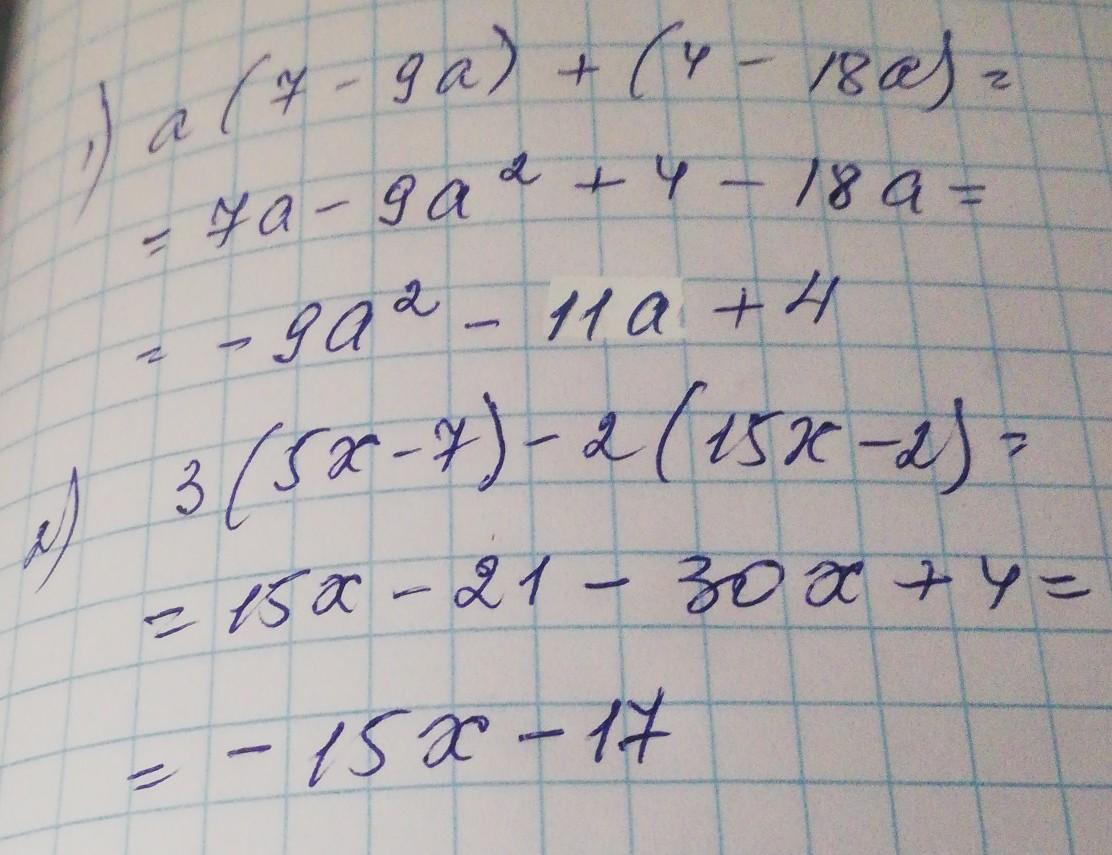 1) a (7 - 9a) + (4 - 18a) =
= 7a - 9a² + 4 - 18a =
= - 9a² - 11a + 4
2) 3(5x - 7) - 2(15x - 2) =
= 15x - 21 - 30x + 4 =
= - 15x - 17